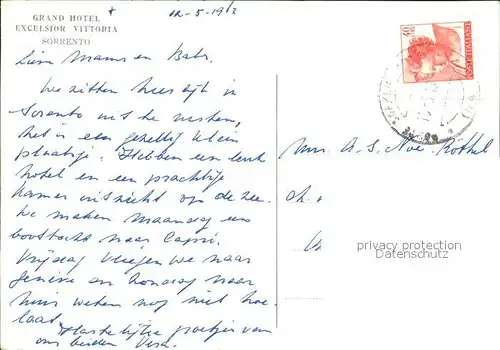 GRAND HOTEL
EXCELSIOR VITTORIA
SORRENTO
12-5-1962
Lieve Mams en
We zitten hier fijn in
Sorento uit te rusten,
het is een gezellig klein
plaatsje. Hebben een leuk
hotel en een prachtige
kamer uitzicht op de zee.
We maken Maandag een
boottocht naar Capri.
Vrijdag vliegen we naar
Genève en Zondag naar
huis weten nog niet hoe
laat.
Hartelijke groetjes van
ons beiden
40
POSTE ITALIANE
Mw. A. S.
privacy protection
Datenschutz